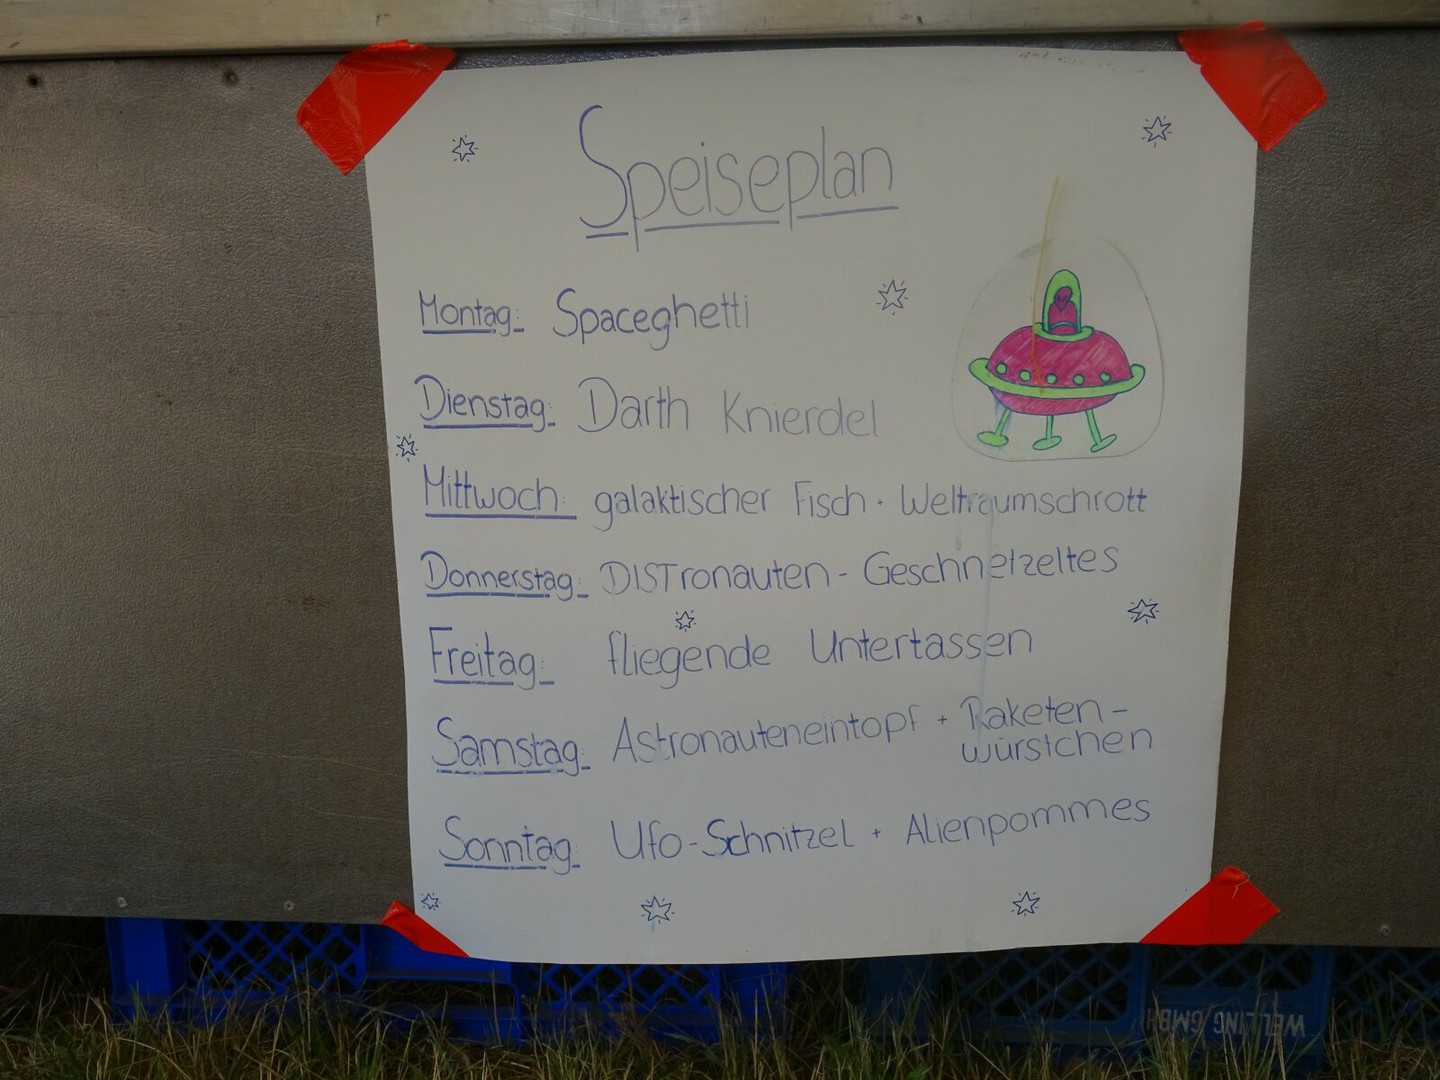 Speiseplan
Montag: Spaceghetti
Dienstag: Darth Knierdel
Mittwoch: galaktischer Fisch + Weltraumschrott
Donnerstag: DISTronauten - Geschnetzeltes
Freitag: fliegende Untertassen
Samstag: Astronauteneintopf + Raketen-
würstchen
Sonntag: Ufo-Schnitzel + Alienpommes
WELLING GMBH